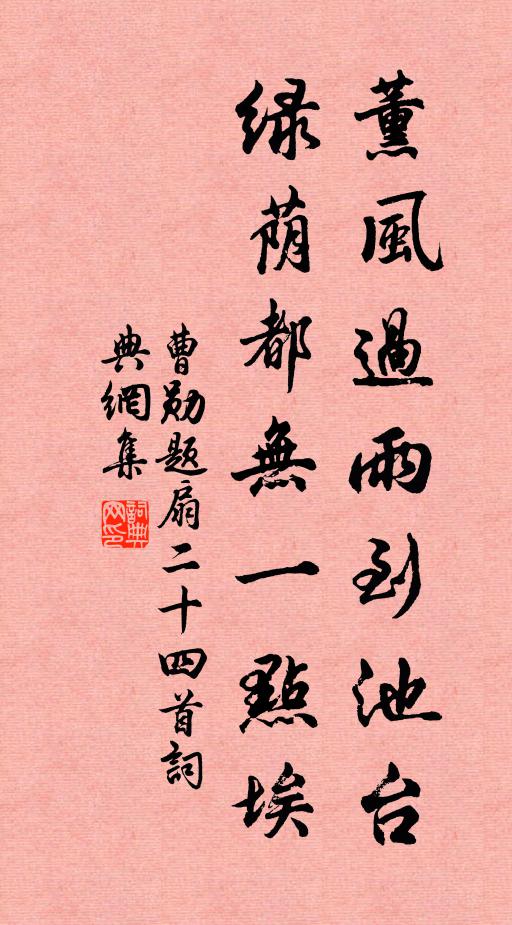 薰風過雨到池台
绿荫都無一點埃
曹勛题扇二十四首詞
典網集
詞典网印